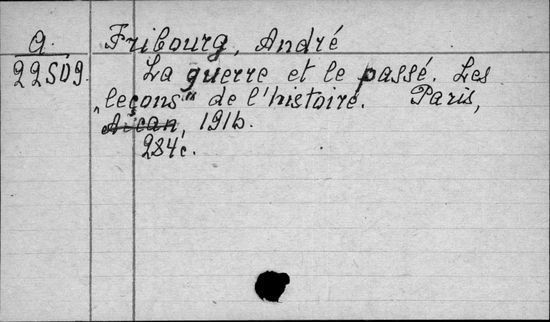 A Fribourg, André
22509. La guerre et le passé. Les
"leçons" de l'histoire. Paris,
Alcan, 1916.
284 c.